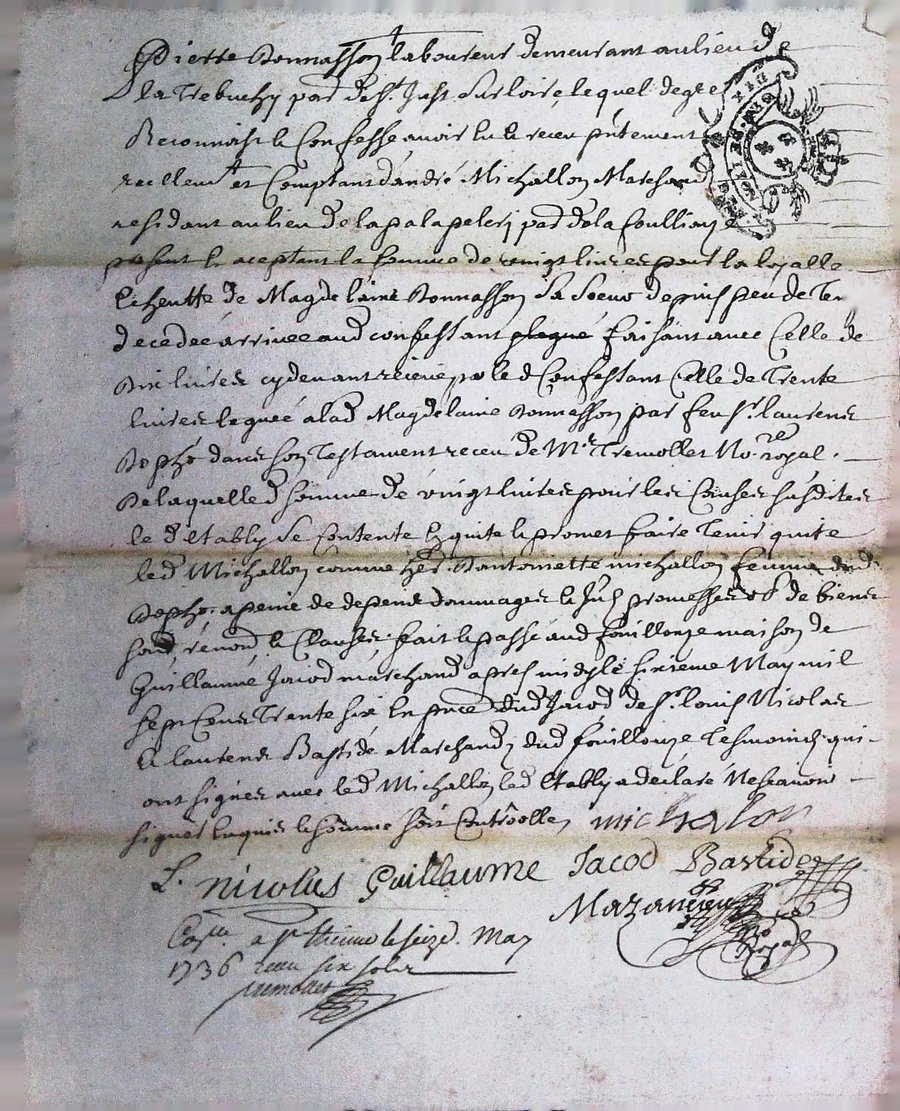 Pierre Bonnasson laboureur demeurant au lieu de
la Trebuchy par de St. Just sur loire, lequel de gre
Reconnoist & Confesse avoir hu & receu pntement
reellemt et Comptant d'andré Michallon Marchand
residant au lieu de la palapelery par de la foullouze
present & aceptant la somme de vingt livres pour la
de Magdelaine Bonnasson sa soeur depuis peu de
decedee arrivee aud confessant faisant avec Celle de
dix livres cy devant receue par led Confessant Celle de Trente
livres leguée a lad Magdelaine Bonnasson par feu Sr. laurens
dans son Testament receu de Mr Tremollet No.re royal.
De laquelle d somme de vingt livres pour les Causes susdites
le d Etably se contente & quite & promet faire Tenir quite
led Michallon comme her. d'antoinette michallon femme dud
a peine de depens dommages & promesses de biens
Clauses, fait & passé aud fouillouze maison de
Guillaume Jacod marchand apres midy le sixieme May mil
sept Cens Trente six en pnce dud Jacod de Sr. louis Nicolas
& laurens Bastide Marchands dud fouillouze Tesmoins qui
ont signes avec led Michallon led Etably a déclaré ne scavoir
signer enquis & sommé soit Controollé michalon
L. nicolas Guillaume Jacod Bastide
Mazancieu
No.re
Royal
Con.lle a St. Etienne le seize. May
1736 receu six solz
tremollet